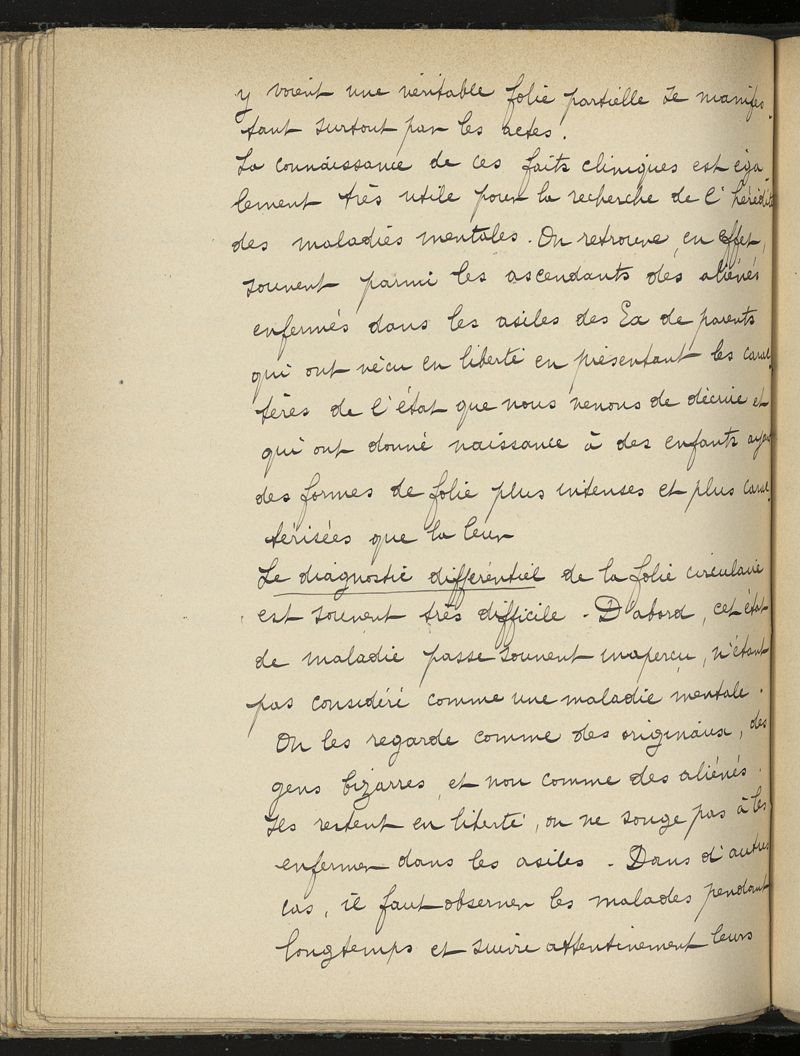 y voient une véritable folie partielle se manifes-
tant surtout par les actes.
La connaissance de ces faits cliniques est éga-
lement très utile pour la recherche de l'hérédité
des maladies mentales. On retrouve, en effet,
souvent parmi les ascendants des aliénés
enfermés dans les asiles des Ex de parents
qui ont vécu en liberté en présentant les carac-
tères de l'état que nous venons de décrire et
qui ont donné naissance à des enfants ayant
des formes de folie plus intenses et plus carac-
térisées que la leur
Le diagnostic différentiel de la folie circulaire
est souvent très difficile - D'abord, cet état
de maladie passe souvent inaperçu, n'étant
pas considéré comme une maladie mentale.
On les regarde comme des originaux, des
gens bizarres, et non comme des aliénés.
Ils restent en liberté, on ne songe pas à les
enfermer dans les asiles - Dans d'autres
cas, il faut observer les malades pendant
longtemps et suivre attentivement leurs